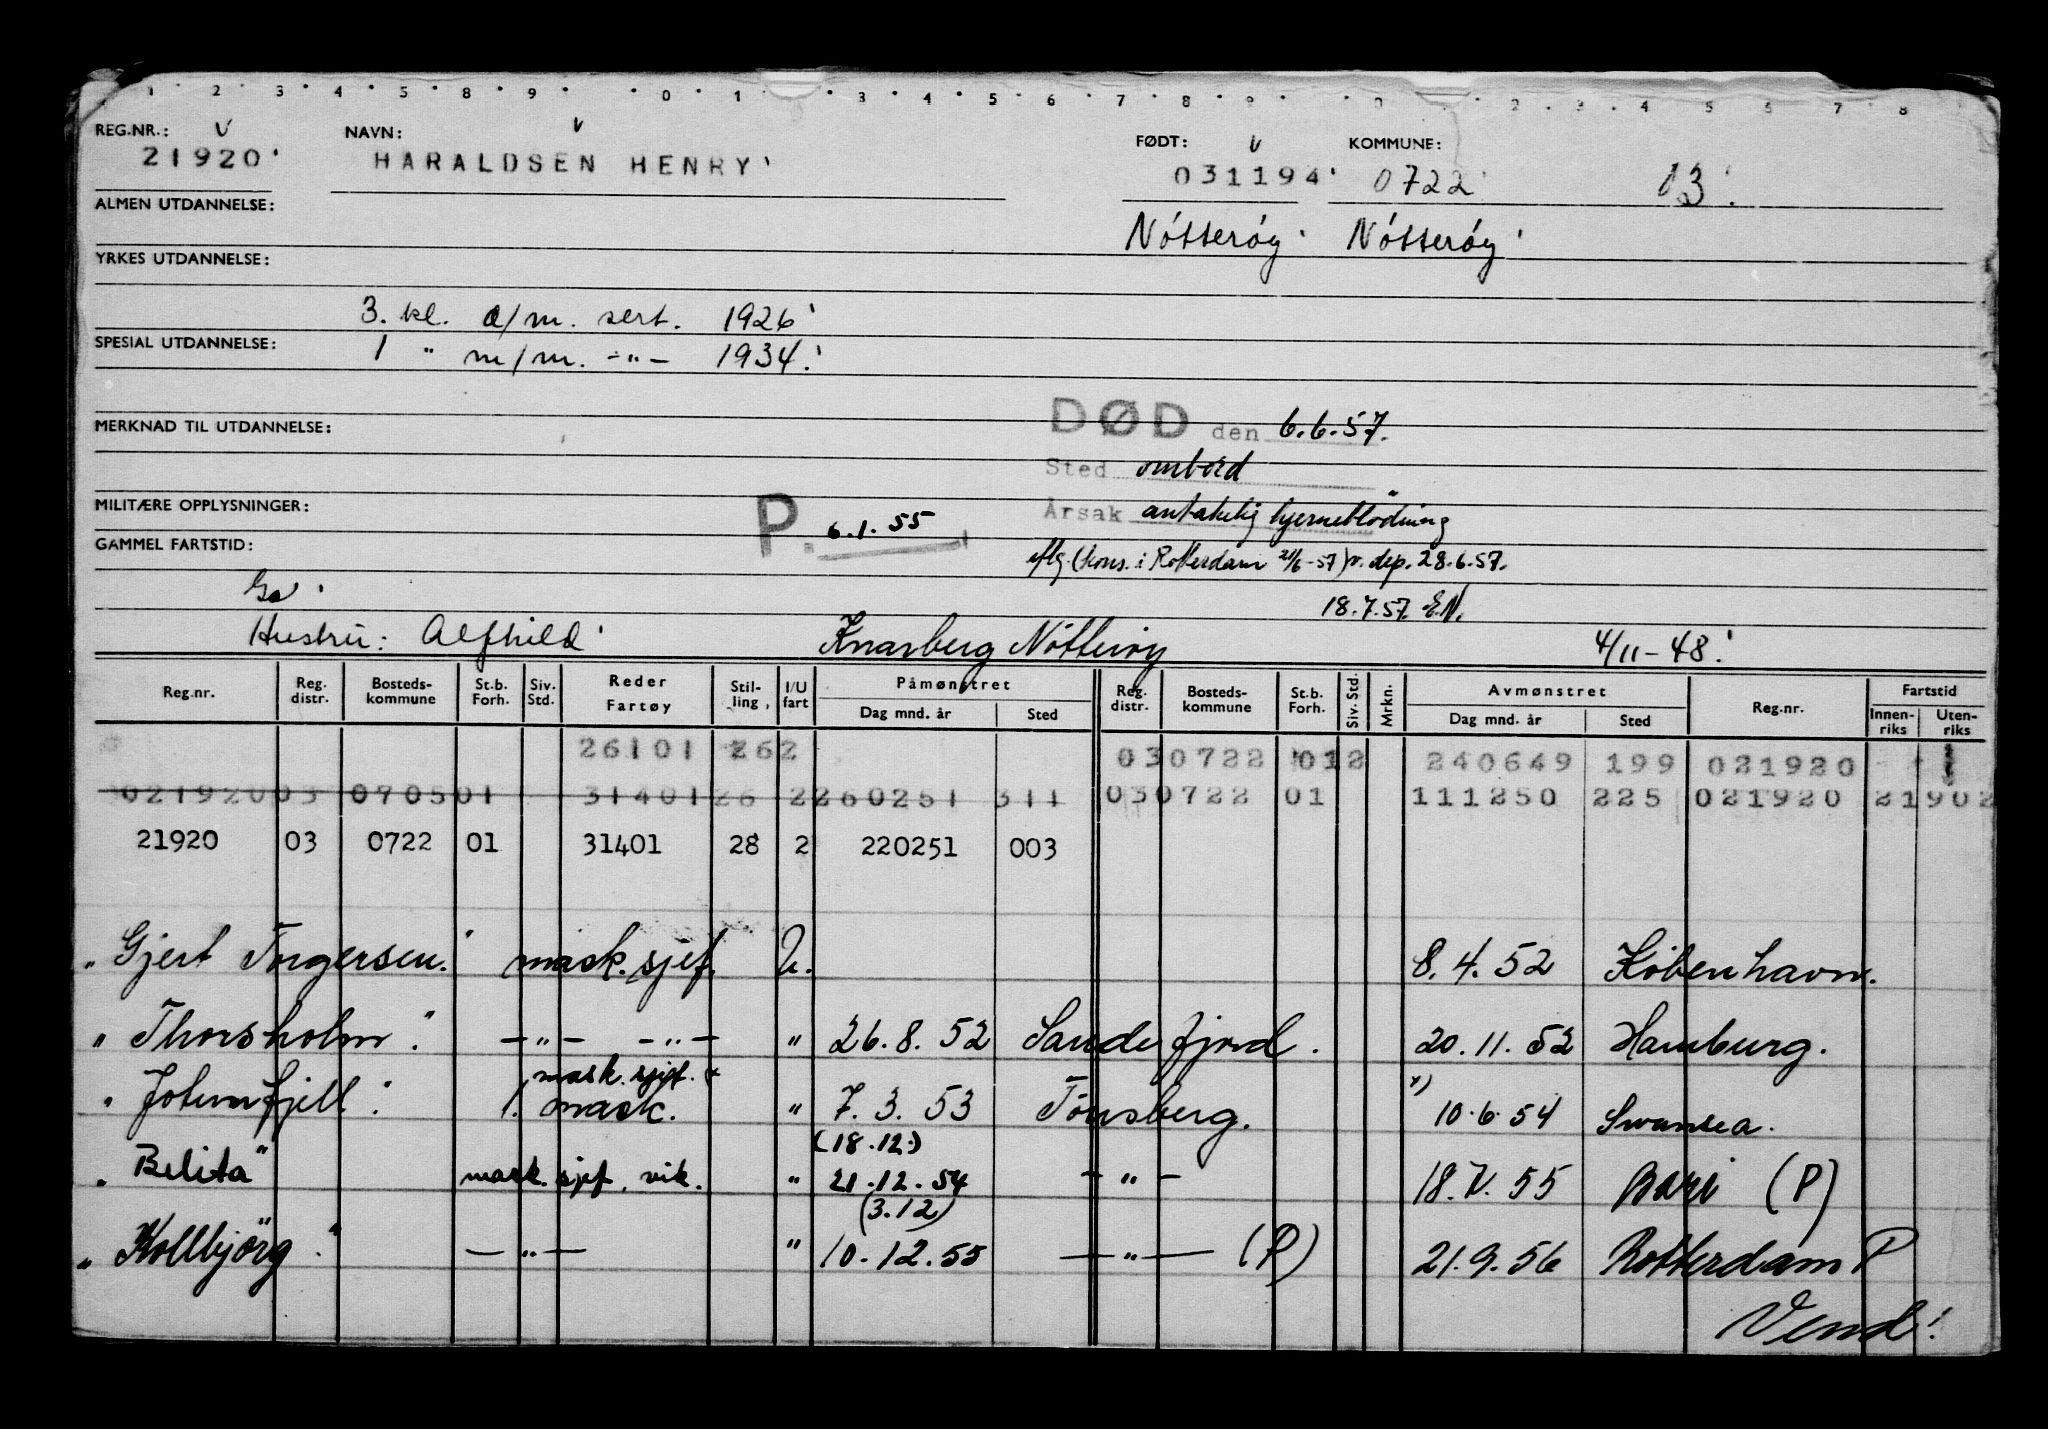 1 2 3 4 5 8 9 0 1 3 4 5 6 7 8 9 0 2 3 4 5 6 7 8
REG.NR.: NAVN: FØDT: KOMMUNE:
21920 HARALDSEN HENRY 031194 0722 03
ALMEN UTDANNELSE:
Nótteróy Nótteróy
YRKES UTDANNELSE:
3. kl. d/m. sert. 1926
SPESIAL UTDANNELSE: 1 " m/m. -"- 1934
DØD den 6.6.57.
MERKNAD TIL UTDANNELSE:
Sted ombord
MILITÆRE OPPLYSNINGER:
P. 6.1.55
Årsak antakelig hjerneblödning
GAMMEL FARTSTID:
iflg. (kons. i Rotterdam 21/6-57) v. dep. 28.6.57.
18.7.57. E.N.
Hustru: Alfhild Knarberg Nötteröy 4/11-48
Reg.nr. Reg. distr. Bosteds-kommune St.b. Forh. Siv. Std. Reder Fartøy Stil-ling I/U fart Påmønstret Dag mnd. år Sted Reg. distr. Bosteds-kommune St.b. Forh. Siv. Std. Mrkn. Avmønstret Dag mnd. år Sted Reg.nr. Fartstid Innen-riks Uten-riks
26101 262 030722 012 240649 199 021920 1
021920 03 0705 01 31401 26 2 260251 311 030722 01 111250 225 021920 21902
21920 03 0722 01 31401 28 2 220251 003
"Gjert Torgersen." mask.sjef. U. 8.4.52 København.
"Thorsholm". -"- -"- " 26.8.52 Sandefjord. 20.11.52 Hamburg.
mask. sjef. x
"Jotunfjell". 1. mask. " 7.3.53 Tönsberg. x) 10.6.54 Swansea.
(18.12.)
"Belita" mask. sjef, vik. " 21.12.54 -"- 18.V.55 Bari (P)
(3.12)
"Kollbjörg". -"- " 10.12.55 -"- (P) 21.9.56 Rotterdam P
Vend!